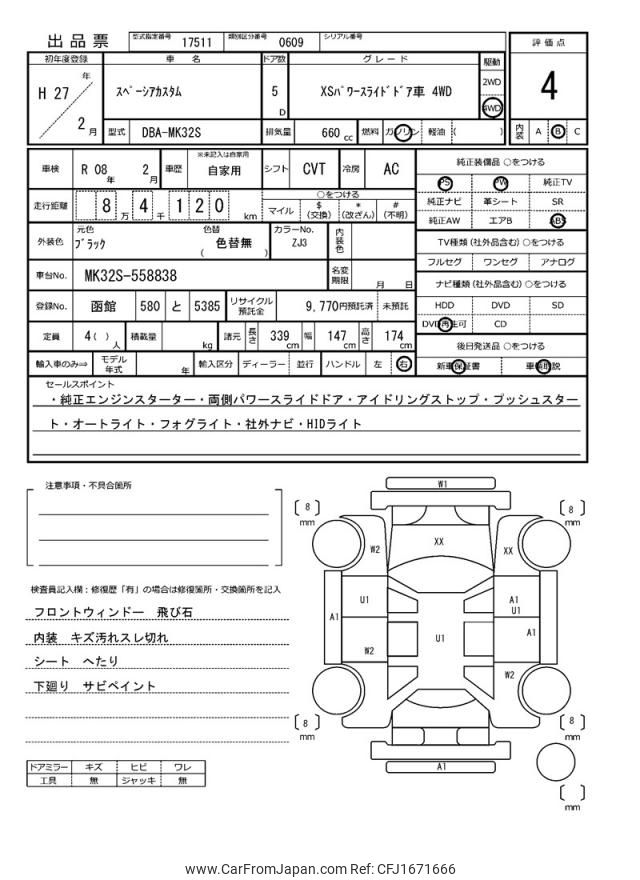 出品票 型式指定番号 17511 類別区分番号 0609 シリアル番号
初年度登録 車名 ドア数 グレード 駆動 評価点
H 27 年 2 月 スペーシアカスタム 5 D XSパワースライドドア車 4WD 2WD 4WD 4
型式 DBA-MK32S 排気量 660 cc 燃料 ガソリン 軽油 ( ) 内装 A B C
車検 R 08 年 2 月 車歴 ※未記入は自家用 自家用 シフト CVT 冷房 AC
走行距離 8 万 4 千 1 2 0 km ○をつける
マイル $ (交換) * (改ざん) # (不明)
外装色 元色 ブラック 色替 ( 色替無 ) カラーNo. ZJ3 内装色
車台No. MK32S-558838 名変期限 月 日
登録No. 函館 580 と 5385 リサイクル預託金 9,770円預託済 未預託
定員 4( ) 人 積載量 kg 諸元 長さ 339 cm 幅 147 cm 高さ 174 cm
輸入車のみ⇒ モデル年式 年 輸入区分 ディーラー 並行 ハンドル 左 右
純正装備品 ○をつける
PS PW 純正TV
純正ナビ 革シート SR
純正AW エアB ABS
TV種類 (社外品含む) ○をつける
フルセグ ワンセグ アナログ
ナビ種類 (社外品含む) ○をつける
HDD DVD SD
DVD再生可 CD
後日発送品 ○をつける
新車保証書 車輌取説
セールスポイント
・純正エンジンスターター・両側パワースライドドア・アイドリングストップ・プッシュスター
ト・オートライト・フォグライト・社外ナビ・HIDライト
注意事項・不具合箇所
検査員記入欄：修復歴「有」の場合は修復箇所・交換箇所を記入
フロントウィンドー 飛び石
内装 キズ汚れスレ切れ
シート へたり
下廻り サビペイント
ドアミラー キズ ヒビ ワレ
工具 無 ジャッキ 無
W1
8 mm
8 mm
W2
XX
XX
A1
U1
A1
U1
U1
A1
W2
W2
8 mm
8 mm
A1
mm
www.CarFromJapan.com Ref: CFJ1671666